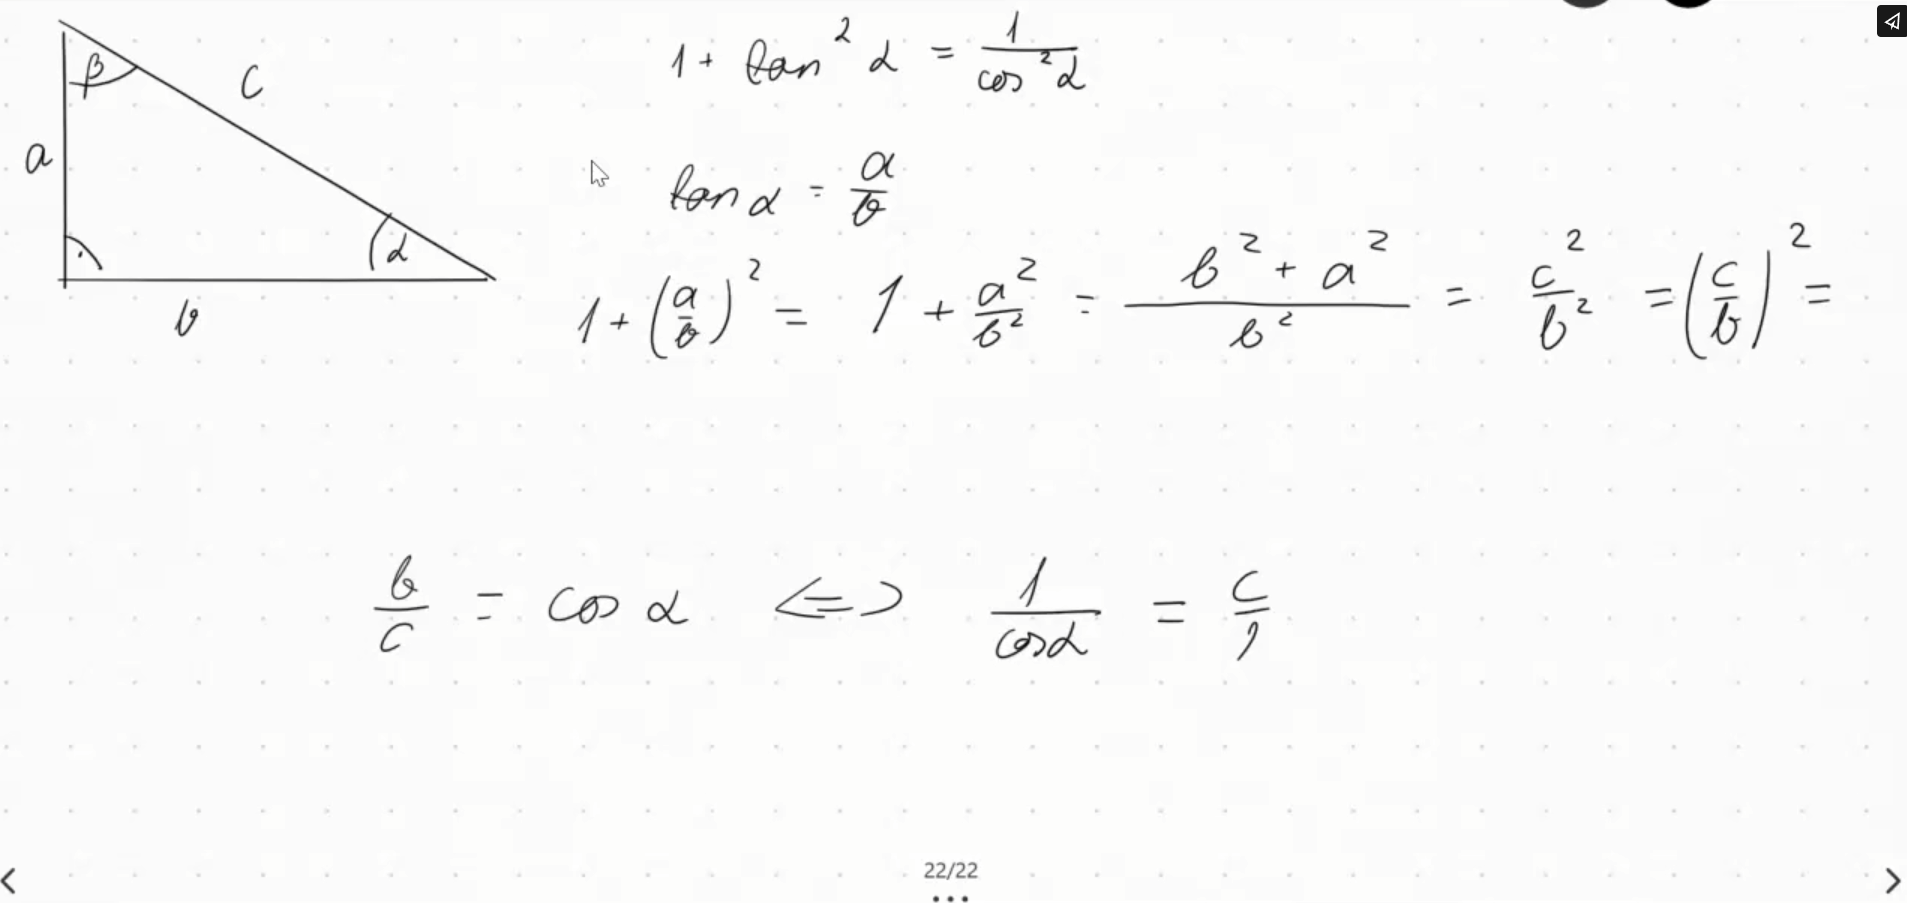 β
c
a
α
b
1 + tan² α = 1/cos² α
tan α = a/b
1 + (a/b)² = 1 + a²/b² = (b² + a²)/b² = c²/b² = (c/b)² =
b/c = cos α <=> 1/cos α = c/
22/22